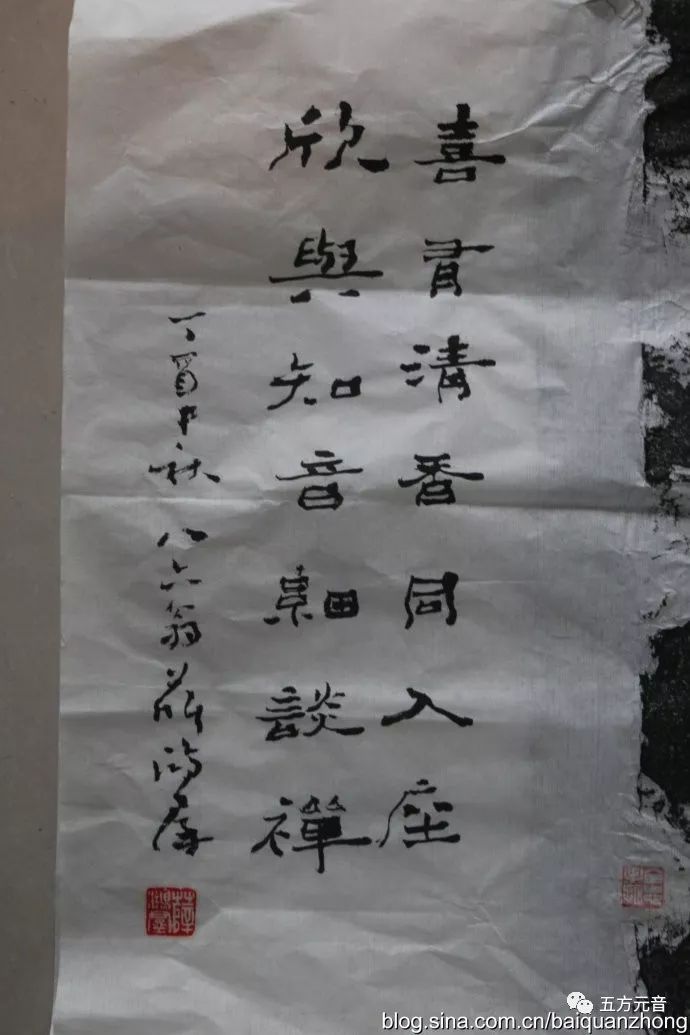 喜有清香同入座
欣與知音細談禪
丁酉中秋八六翁薛鴻
五方元音
blog.sina.com.cn/baiquanzhong